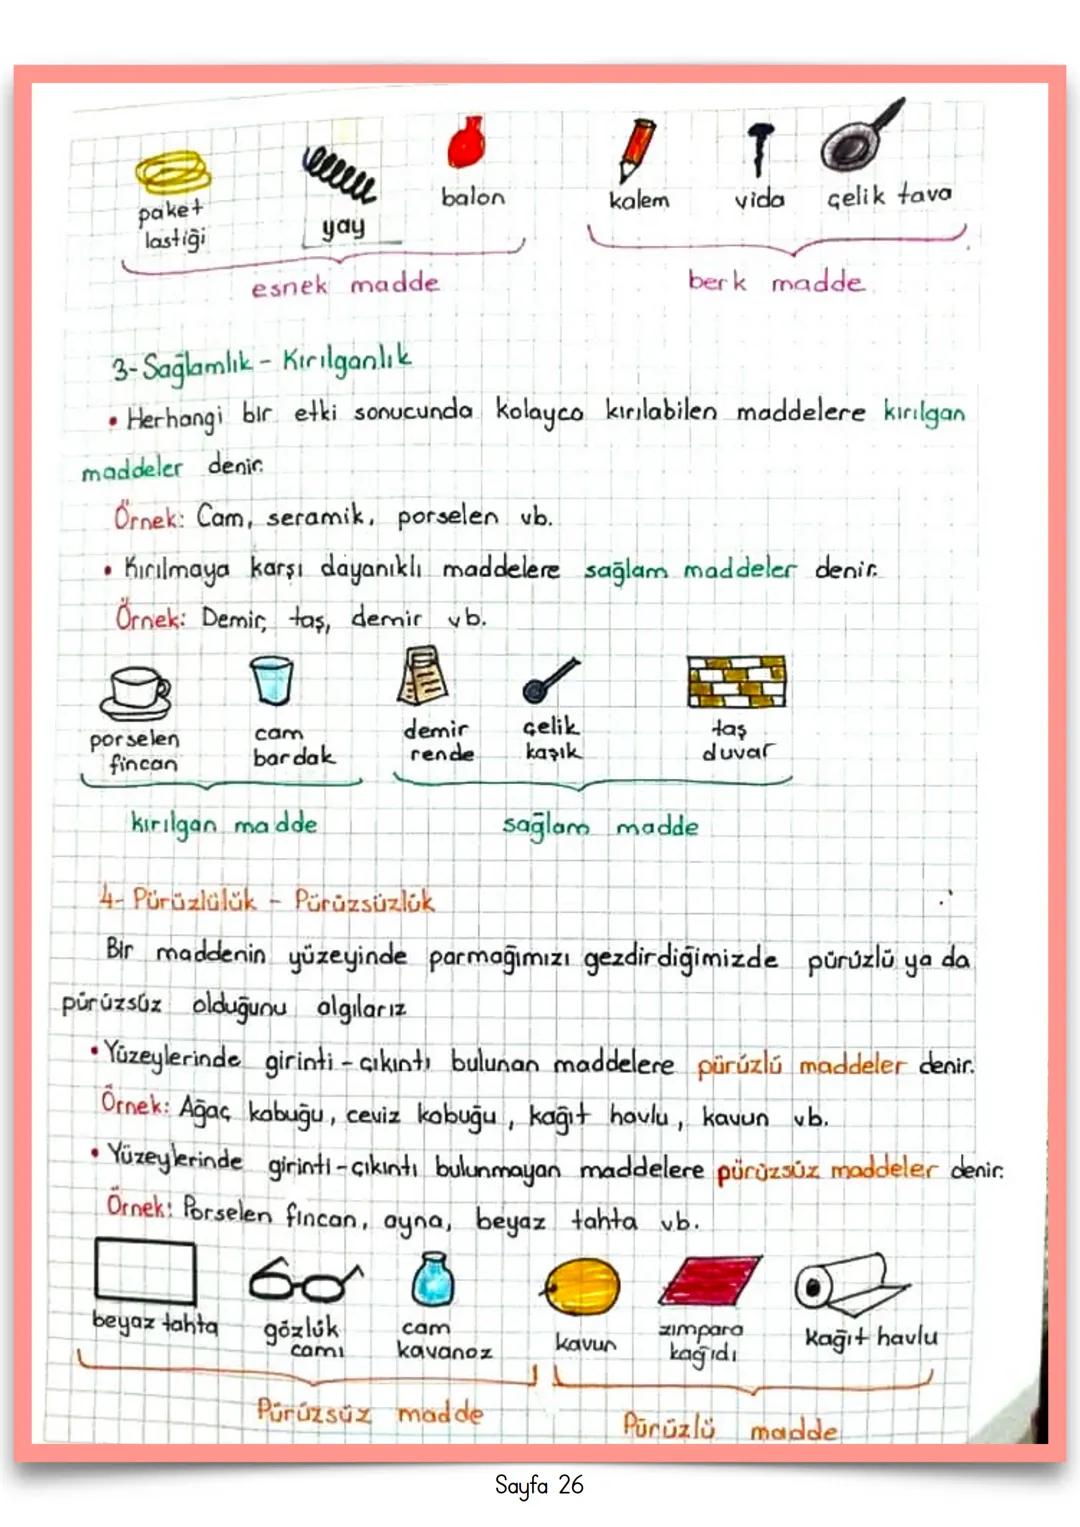 paket lastiği
yay
balon
kalem
vida
çelik tava
esnek madde
berk madde
3- Sağlamlık - Kırılganlık
• Herhangi bir etki sonucunda kolayca kırılabilen maddelere kırılgan
maddeler denir.
Örnek: Cam, seramik, porselen vb.
• Kırılmaya karşı dayanıklı maddelere sağlam maddeler denir.
Örnek: Demir, taş, demir vb.
porselen fincan
cam bardak
demir rende
çelik kaşık
taş duvar
kırılgan madde
sağlam madde
4- Pürüzlülük - Pürüzsüzlük
Bir maddenin yüzeyinde parmağımızı gezdirdiğimizde pürüzlü ya da
pürüzsüz olduğunu algılarız
• Yüzeylerinde girinti - çıkıntı bulunan maddelere pürüzlü maddeler denir.
Örnek: Ağaç kabuğu, ceviz kabuğu, kağıt havlu, kavun vb.
• Yüzeylerinde girinti - çıkıntı bulunmayan maddelere pürüzsüz maddeler denir.
Örnek: Porselen fincan, ayna, beyaz tahta vb.
beyaz tahta
gözlük camı
cam kavanoz
kavun
zımpara kağıdı
kağıt havlu
Pürüzsüz madde
Pürüzlü madde
Sayfa 26